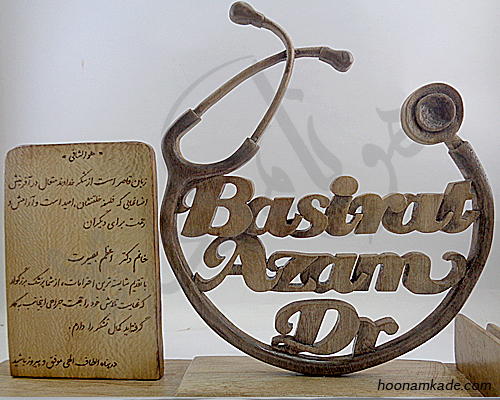 « هوالشافی »
زبان قاصر است از شکر خداوند متعال در آفرینش
انسانهایی که فلسفه خلقتشان، امید است و آرامش و
رحمت برای دیگران
خانم دکتر اعظم بصیرت
با تقدیم شایسته ترین احترامات، از شما پزشک بزرگوار
که غایت تلاش خود را جهت جراحی اینجانب به عهد
گرفته‌اید کمال تشکر را دارم.
در پناه الطاف الهی موفق و پیروز باشید
Basirat
Azam
Dr
hoonamkade.com